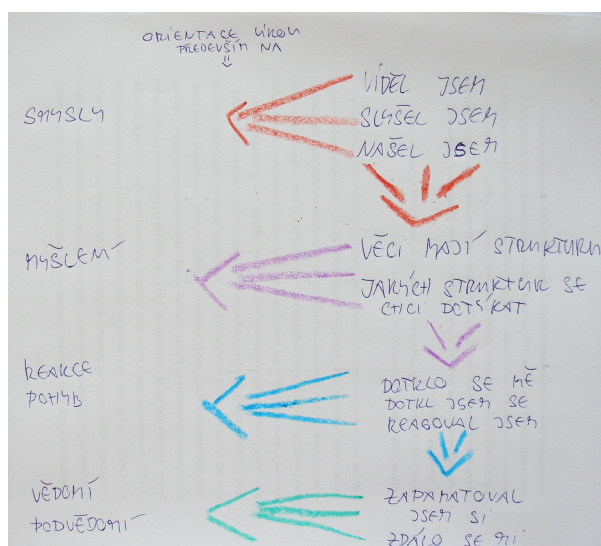 ORIENTACE ÚKOLU
PŘEDEVŠÍM NA
SMYSLY
VIDĚL JSEM
SLYŠEL JSEM
NAŠEL JSEM
MYŠLENÍ
VĚCI MAJÍ STRUKTURU
JAKÝCH STRUKTUR SE
CHCI DOTÝKAT
REAKCE
POHYB
DOTKLO SE MĚ
DOTKL JSEM SE
REAGOVAL JSEM
VĚDOMÍ
PODVĚDOMÍ
ZAPAMATOVAL
JSEM SI
ZDÁLO SE MI